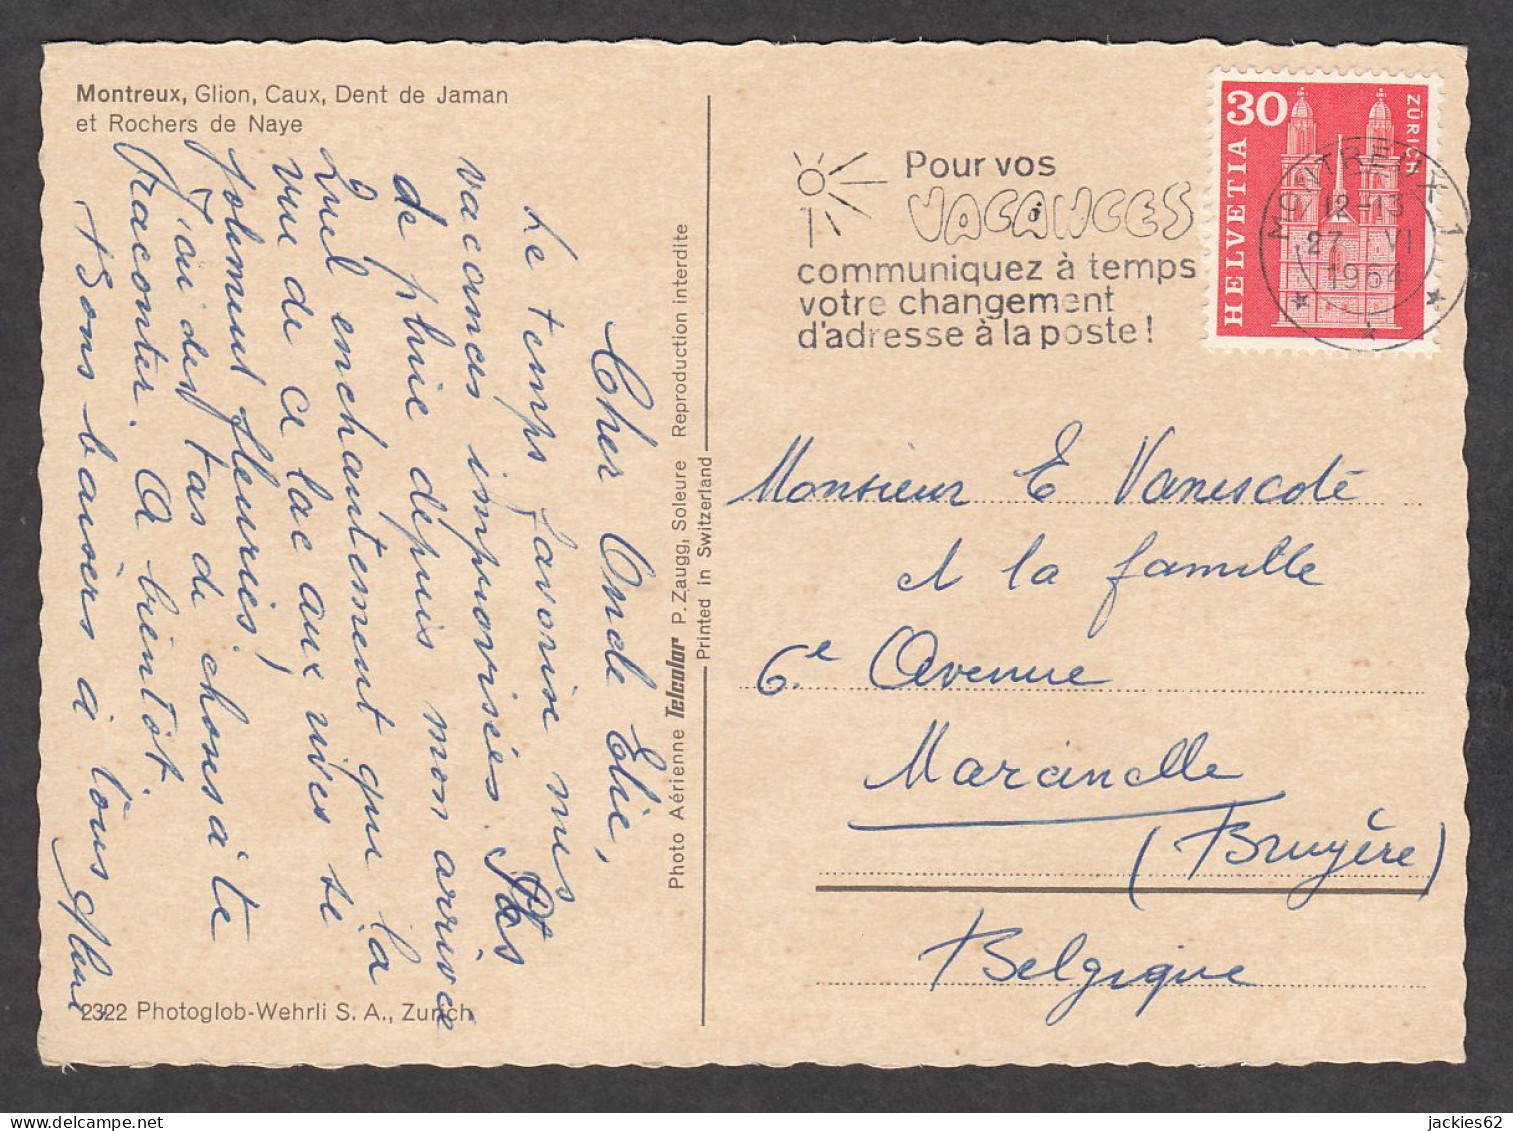 Montreux, Glion, Caux, Dent de Jaman
et Rochers de Naye
Cher Oncle Elie,
Le temps favorise mes
vacances improvisées. Pas
de pluie depuis mon arrivée
Quel enchantement que la
vue de ce lac aux rives se
joliment fleuries!
J'ai des tas de choses à te
raconter. A bientôt.
Bons baisers à tous
2322 Photoglob-Wehrli S. A., Zurich
Photo Aérienne Telcolor P. Zaugg, Soleure Reproduction interdite
Printed in Switzerland
Pour vos
VACANCES
communiquez à temps
votre changement
d'adresse à la poste!
30
HELVETIA
ZÜRICH
MONTREUX 1
12-13
27 VI
1964
Monsieur E Vanescote
et la famille
6e Avenue
Marcinelle
(Bruyère)
Belgique
jackies62